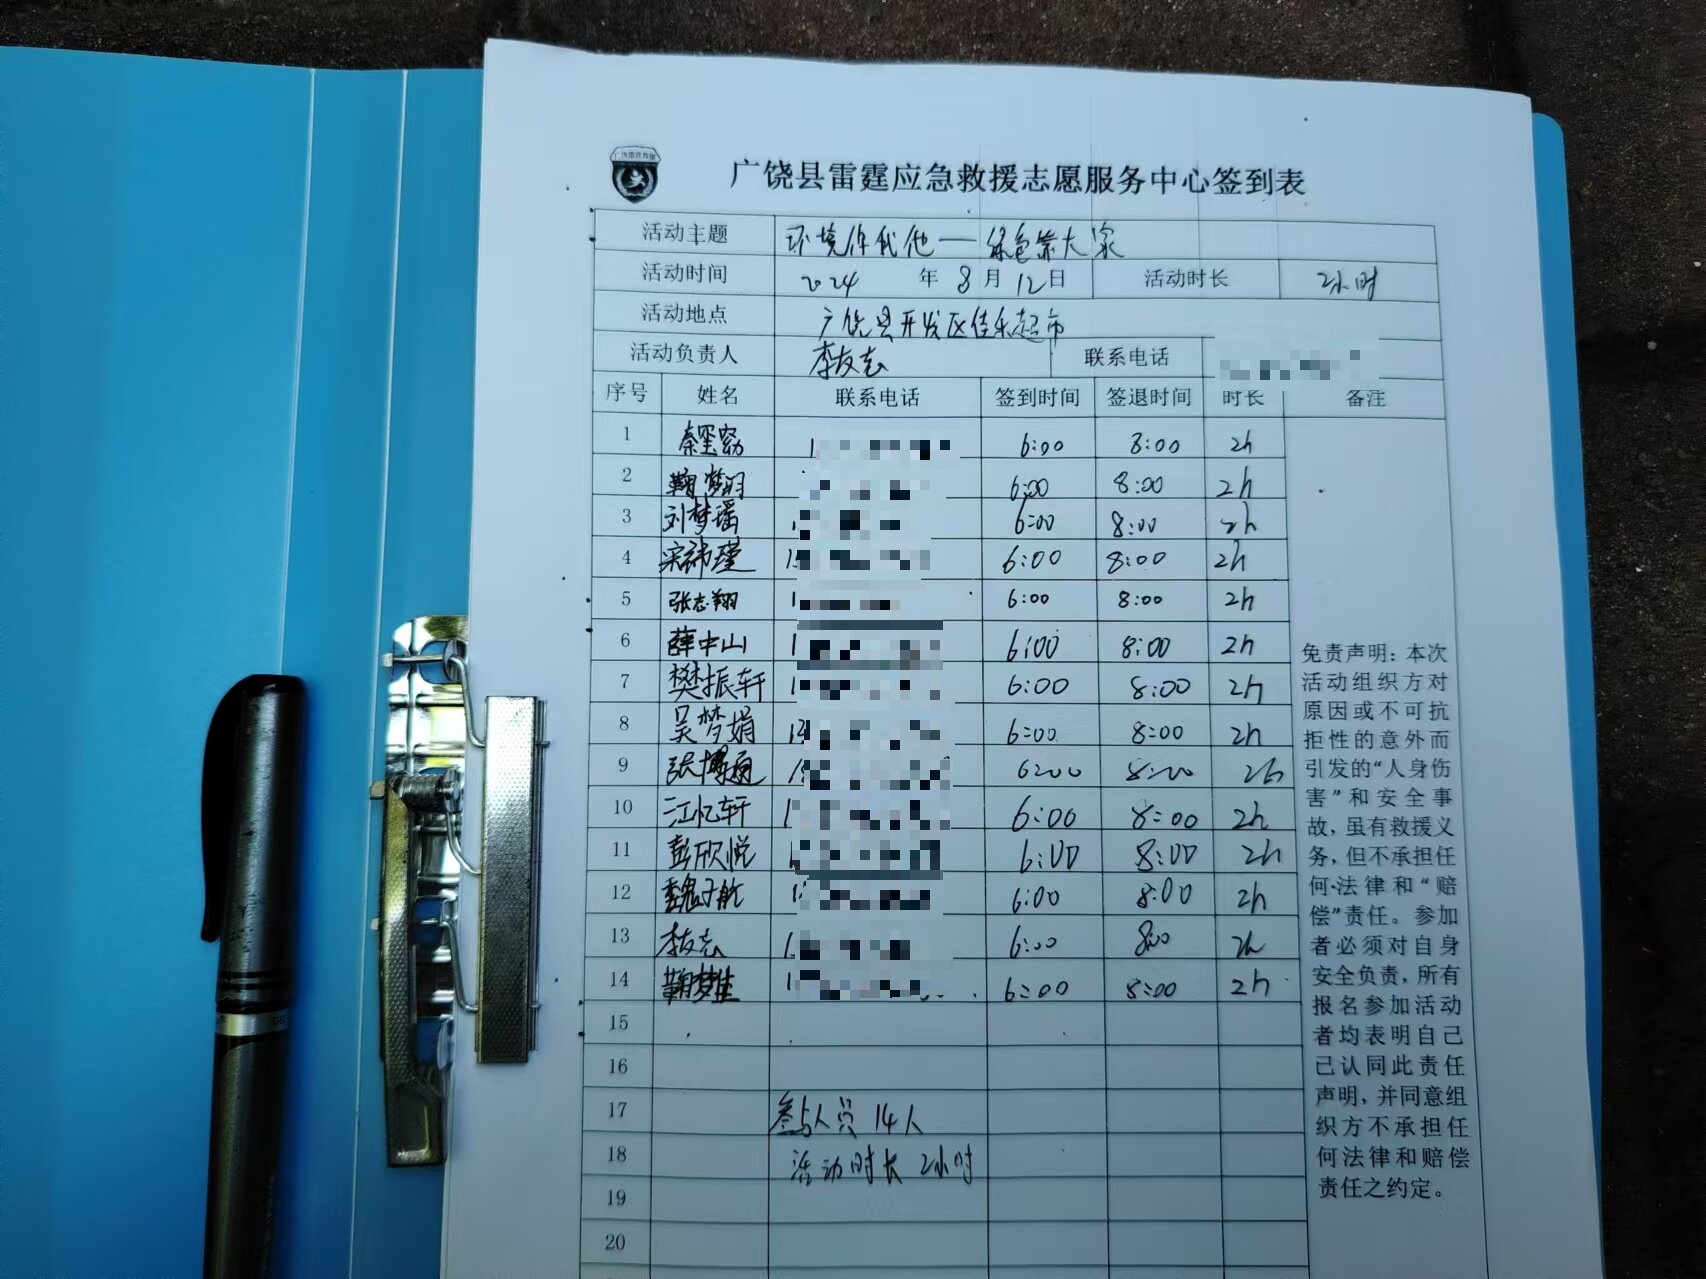 广饶县雷霆应急救援志愿服务中心签到表
活动主题 环境你我他——绿色靠大家
活动时间 2024 年 8 月 12 日 活动时长 2小时
活动地点 广饶县开发区佳乐超市
活动负责人 李友志 联系电话
序号 姓名 联系电话 签到时间 签退时间 时长 备注
1 6:00 8:00 2h
2 6:00 8:00 2h
3 刘梦瑶 6:00 8:00 2h
4 宋祎瑾 6:00 8:00 2h
5 张志翔 6:00 8:00 2h
6 薛中山 6:00 8:00 2h
7 樊振轩 6:00 8:00 2h
8 吴梦娟 6:00 8:00 2h
9 张博 6:00 8:00 2h
10 江忆轩 6:00 8:00 2h
11 彭欣悦 6:00 8:00 2h
12 魏子航 6:00 8:00 2h
13 李友志 6:00 8:00 2h
14 鞠梦 6:00 8:00 2h
15
16
17 参与人员 14人
18 活动时长 2小时
19
20
免责声明:本次
活动组织方对
原因或不可抗
拒性的意外而
引发的“人身伤
害”和安全事
故,虽有救援义
务,但不承担任
何·法律和“赔
偿”责任。参加
者必须对自身
安全负责,所有
报名参加活动
者均表明自己
已认同此责任
声明,并同意组
织方不承担任
何法律和赔偿
责任之约定。